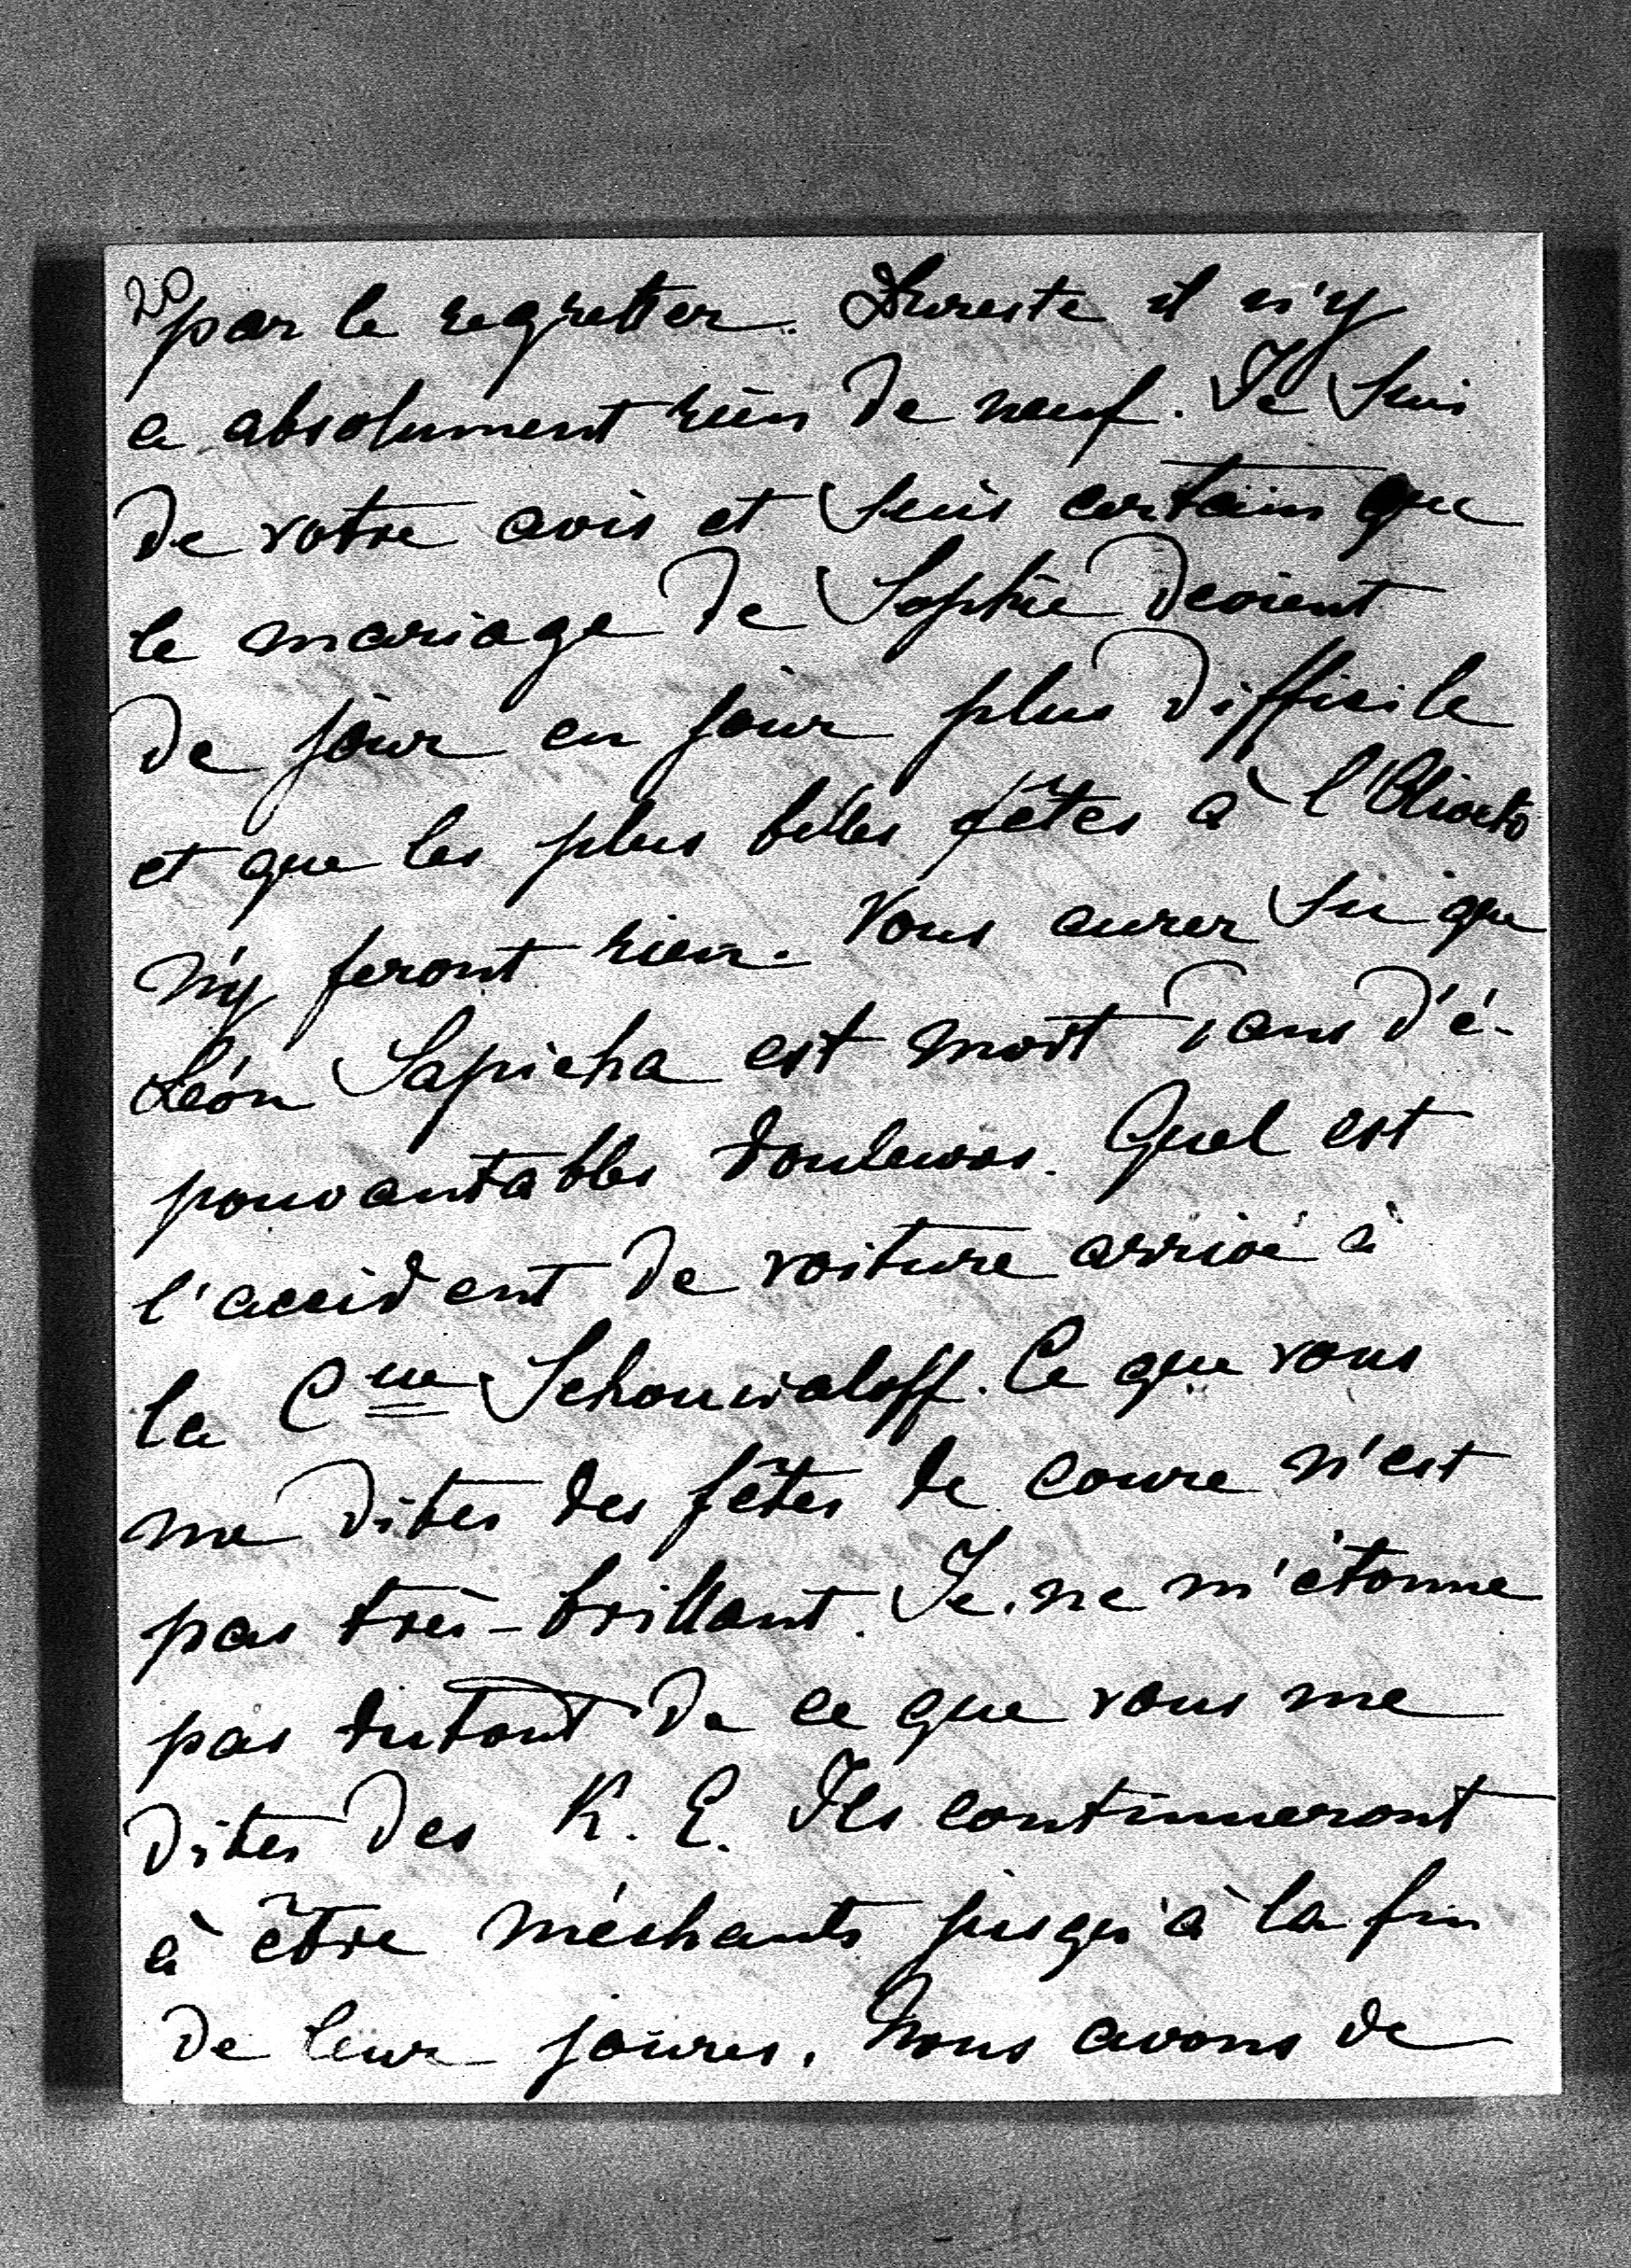 20
par le regretter. Dureste il n'y
a absolument rien de neuf. Je suis
de votre avis et suis certain que
le mariage de Sophie devient
de jour en jour plus difficile
et que les plus belles fêtes à
n'y feront rien. Vous aurez su que
Léon Sapieha est mort dans d'é-
pouvantables douleurs. Quel est
l'accident de voiture arrivé à
la Csse Schouwaloff. Ce que vous
me dites des fêtes de coure n'est
pas très-brillant. Je ne m'étonne
pas dutout de ce que vous me
dites des K. E. Ils continueront
à être méchants jusqu'à la fin
de leur joures. Nous avons de